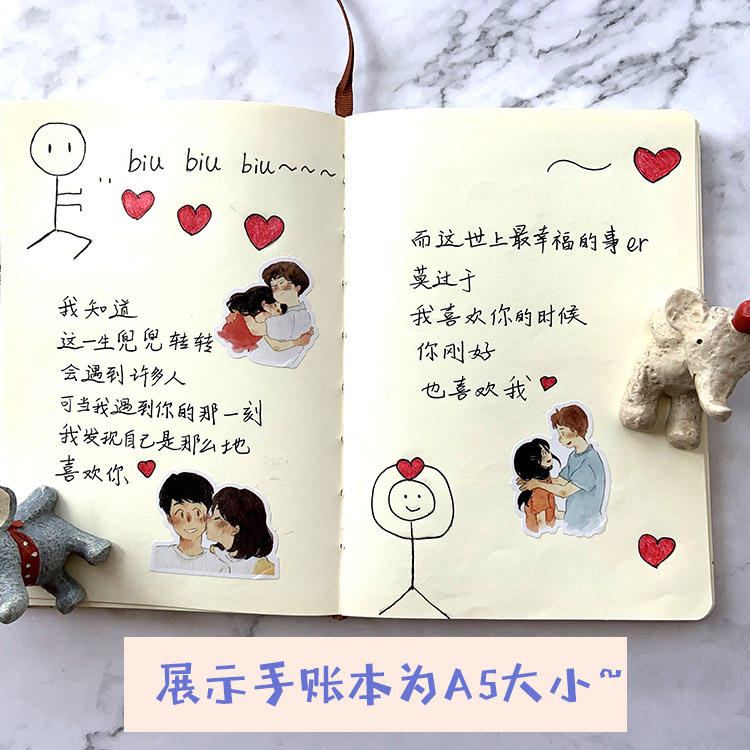 biu biu biu～～～
我知道
这一生兜兜转转
会遇到许多人
可当我遇到你的那一刻
我发现自己是那么地
喜欢你
而这世上最幸福的事er
莫过于
我喜欢你的时候
你刚好
也喜欢我
展示手账本为A5大小~